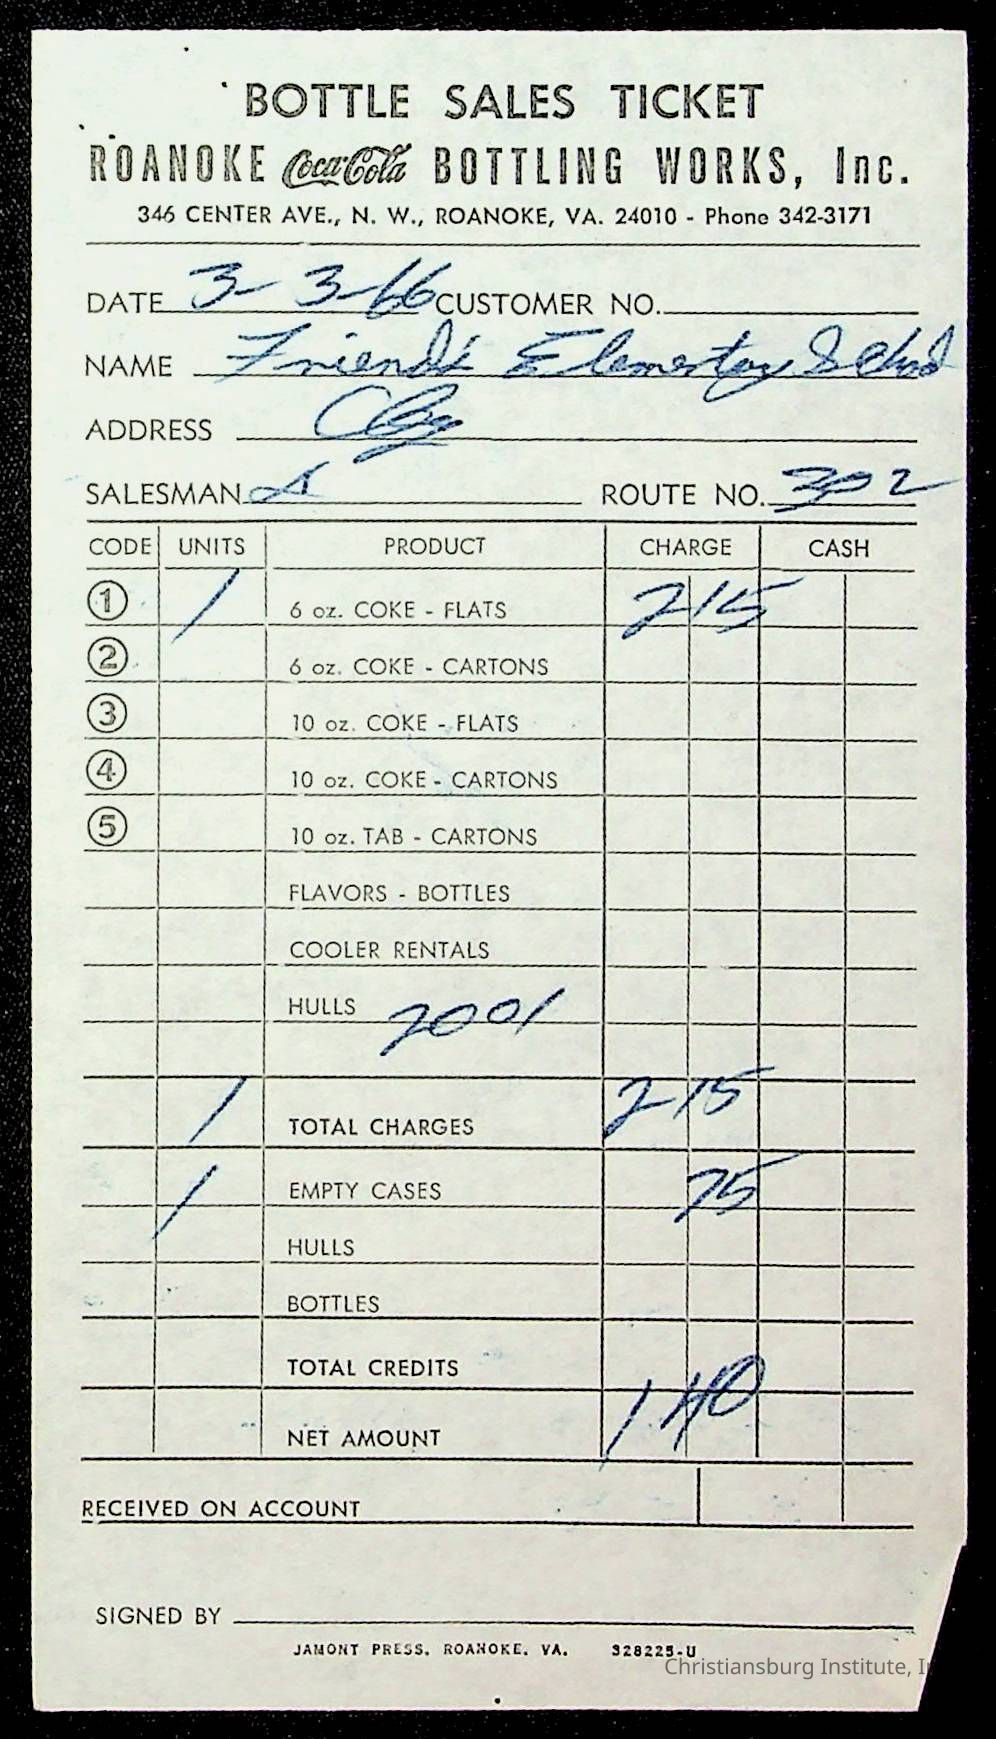 BOTTLE SALES TICKET
ROANOKE Coca-Cola BOTTLING WORKS, Inc.
346 CENTER AVE., N. W., ROANOKE, VA. 24010 - Phone 342-3171
DATE 3-3-66 CUSTOMER NO.
NAME Friends Elementary School
ADDRESS
SALESMAN ROUTE NO. 302
CODE UNITS PRODUCT CHARGE CASH
1 1 6 oz. COKE - FLATS 2 15
2 6 oz. COKE - CARTONS
3 10 oz. COKE - FLATS
4 10 oz. COKE - CARTONS
5 10 oz. TAB - CARTONS
FLAVORS - BOTTLES
COOLER RENTALS
HULLS 2001
1 TOTAL CHARGES 2 15
1 EMPTY CASES 75
HULLS
BOTTLES
TOTAL CREDITS
NET AMOUNT 1 40
RECEIVED ON ACCOUNT
SIGNED BY
JAMONT PRESS, ROANOKE, VA. 328225-U
Christiansburg Institute, I